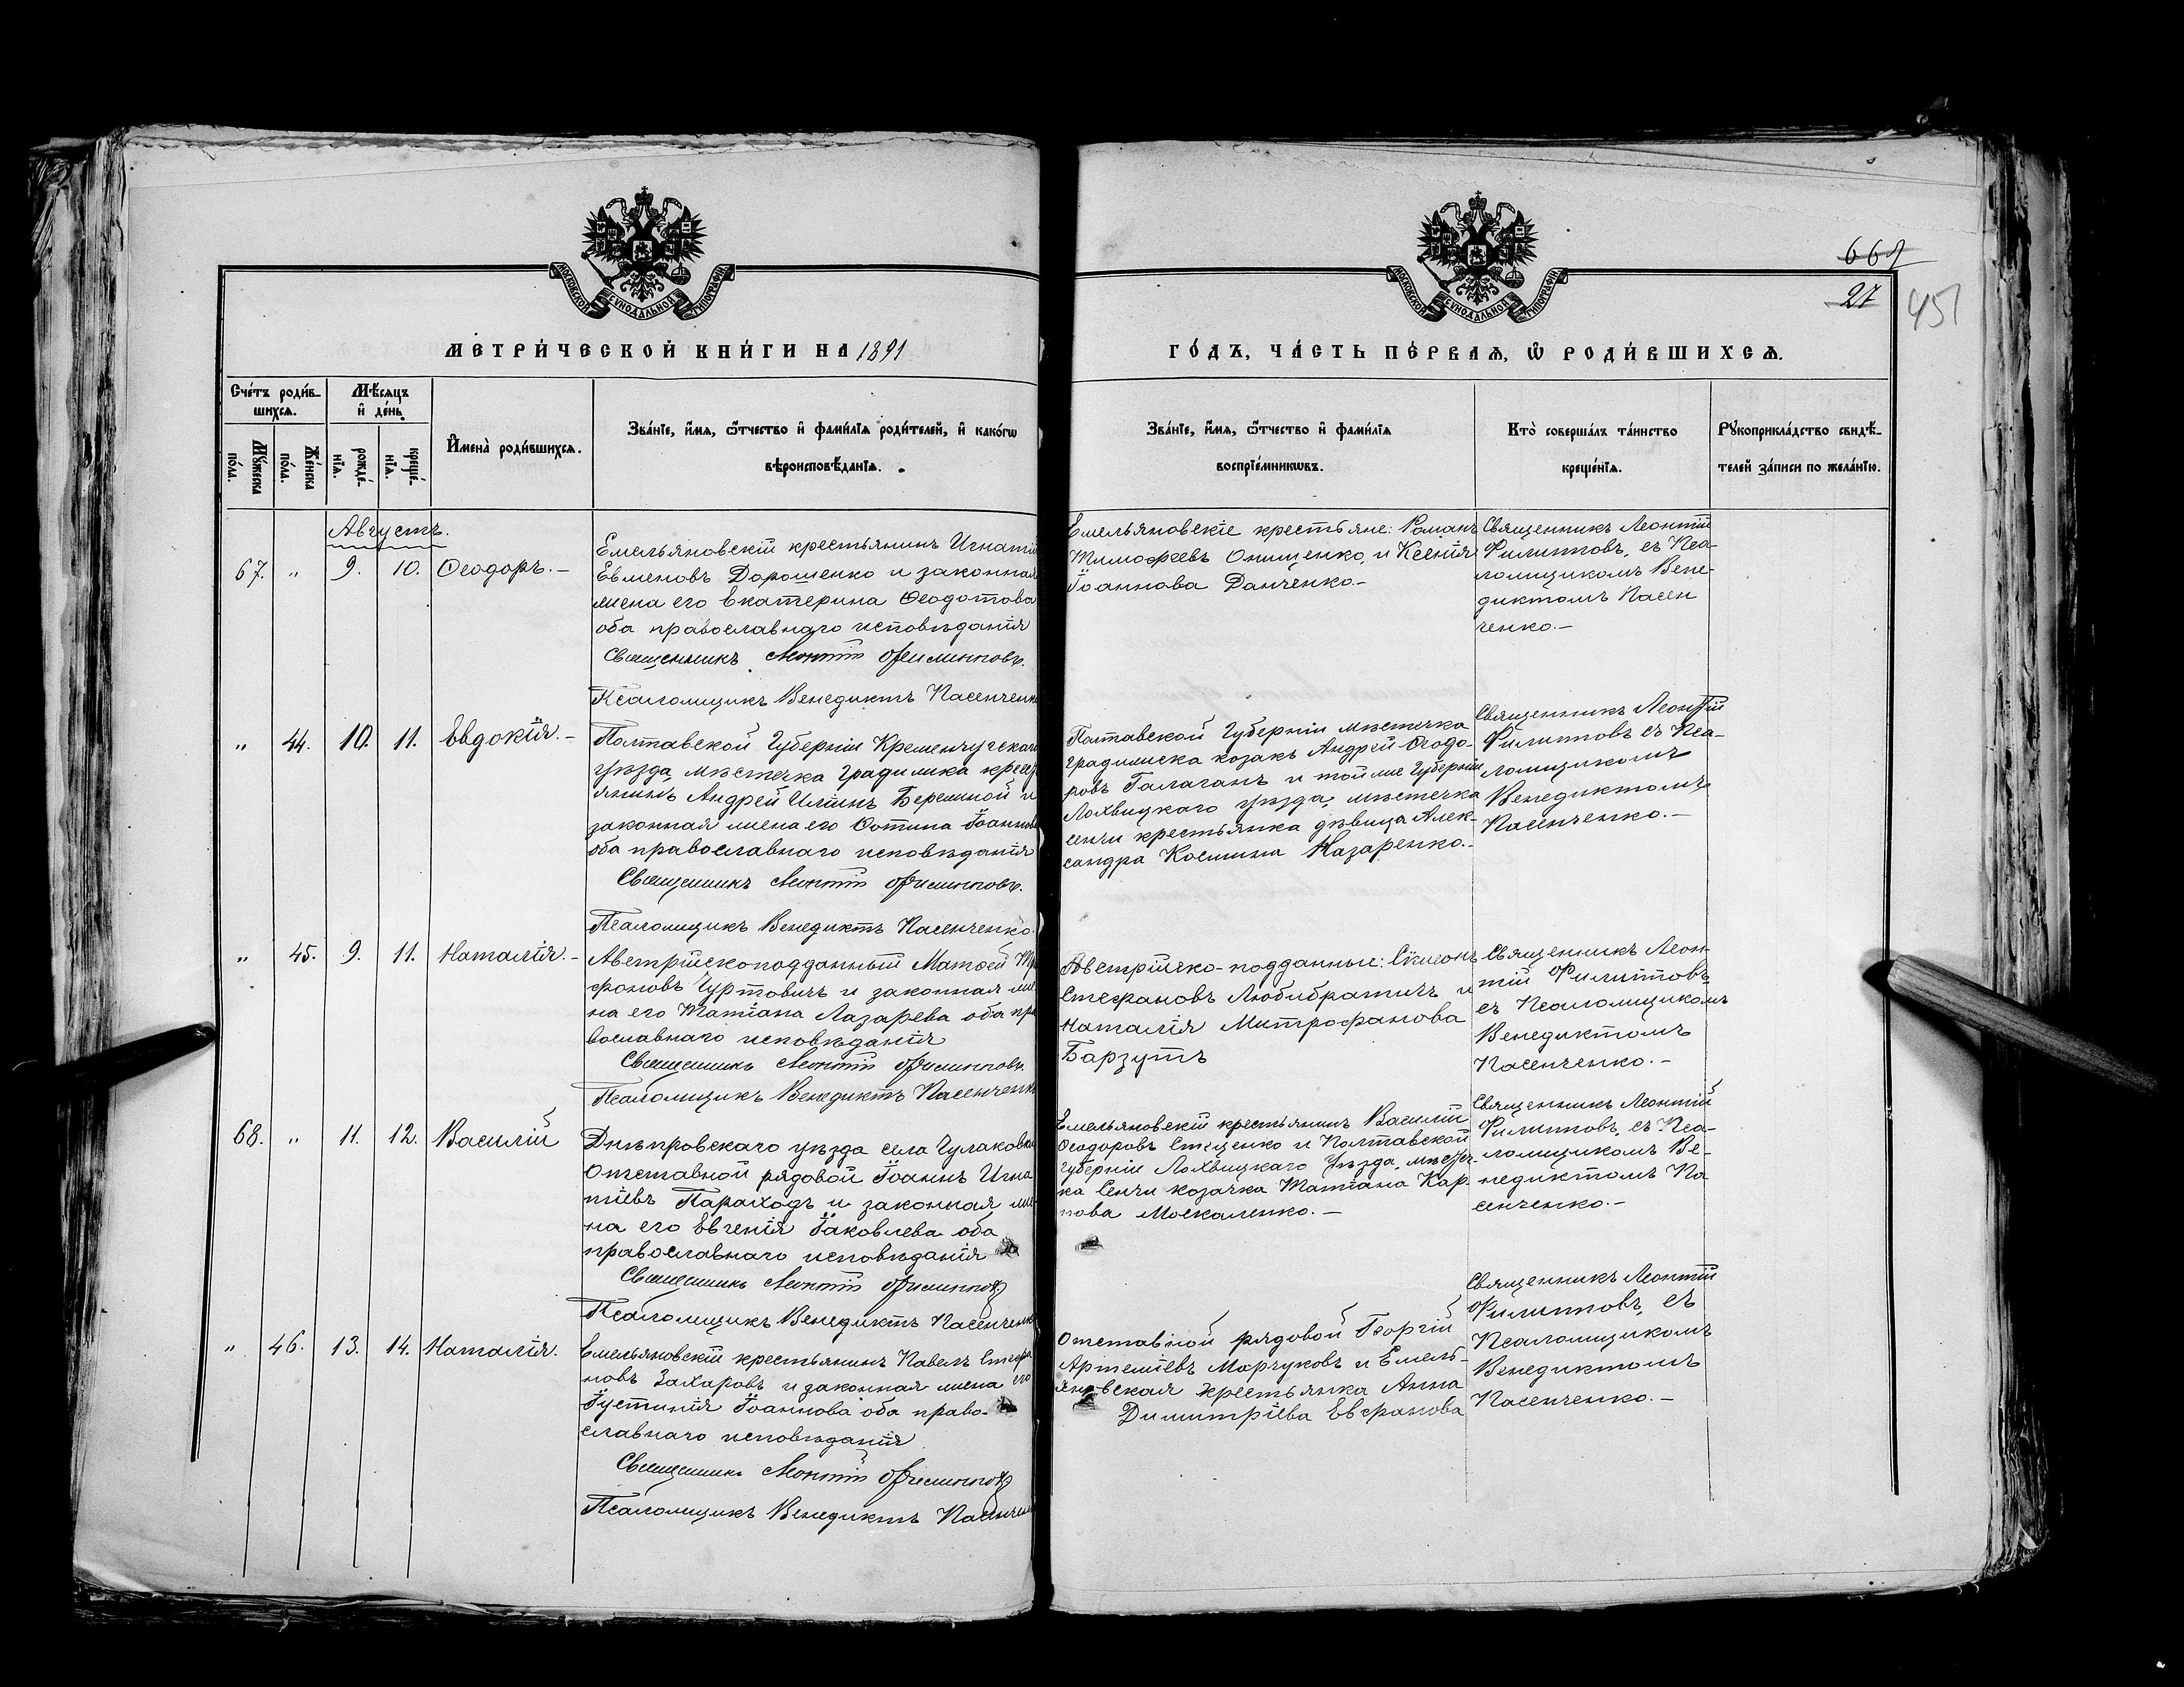 667
27
451
МОСКОВСКОЙ СѴНОДАЛЬНОЙ ТИПОГРАФІИ
МОСКОВСКОЙ СѴНОДАЛЬНОЙ ТИПОГРАФІИ
МЕТРИ́ЧЕСКОЙ КНИ́ГИ НА 1891
ГО́ДЪ, ЧА́СТЬ ПЕ́РВАѦ, Ѡ РОДИ́ВШИХСѦ.
Сче́тъ роди́в-
шихсѧ.
Мѣ́сѧцъ
и де́нь
Мꙋ́жеска по́ла.
Же́нска по́ла.
рожде́-
нїѧ.
креще́-
нїѧ.
И҆мена̀ роди́вшихсѧ.
Зва́нїе, и҆́мѧ, ѻ҆́тчество и҆ фами́лїѧ роди́телей, и҆ како́гѡ
вѣроисповѣ́данїѧ.
Зва́нїе, и҆́мѧ, ѻ҆́тчество и҆ фами́лїѧ
воспрїе́мникѡвъ.
Кто̀ соверша́лъ та́инство
креще́нїѧ.
Рꙋкоприкла́дство свидѣ́-
телей за́писи по жела́нїю.
Августъ.
67. " 9. 10. Ѳеодоръ.—
Емельяновскій крестьянинъ Игнатій
Евменовъ Дорошенко и законная
жена его Екатерина Ѳеодотова
оба православнаго исповѣданія
Священникъ Леонтій Филипповъ.
Псаломщикъ Венедиктъ Пасенченко
Емельяновскіе крестьяне: Романъ
Тимофеевъ Онищенко, и Ксенія
Іоаннова Данченко.—
Священникъ Леонтій
Филипповъ, съ Пса-
ломщикомъ Вене-
диктомъ Пасен
ченко.—
" 44. 10. 11. Евдокія.—
Полтавской Губерніи Кременчугскаго
уѣзда, мѣстечка Градижка крест
янинъ Андрей Иліинъ Бережной и
законная жена его Фотина Іоаннова
оба православнаго исповѣданія
Священникъ Леонтій Филипповъ.
Псаломщикъ Венедиктъ Пасенченко.
Полтавской Губерніи мѣстечка
Градижска козакъ Андрей Ѳеодо-
ровъ Галаганъ и той же Губерніи
Лохвицкаго уѣзда, мѣстечка
Сенчи крестьянка дѣвица Алек-
сандра Космина Назаренко.—
Священникъ Леонтій
Филипповъ съ Пса-
ломщикомъ
Венедиктомъ
Пасенченко.—
" 45. 9. 11. Наталія.—
Австрійскоподданный Матѳей Тр
фоновъ Чуртовичъ и законная же
на его Татіана Лазарева оба пра
вославнаго исповѣданія
Священникъ Леонтій Филипповъ.
Псаломщикъ Венедиктъ Пасенченко
Австрійско-подданные: Сімеонъ
Стефановъ Любибратичъ и
Наталія Митрофанова
Барзутъ
Священникъ Леон-
тій Филипповъ
съ Псаломщикомъ
Венедиктомъ
Пасенченко.—
68. " 11. 12. Василій
Днѣпровскаго уѣзда села Чулаковки
Отставной рядовой Іоаннъ Игна
тіевъ Параходъ и законная же
на его Евгенія Іаковлева оба
православнаго исповѣданія
Священникъ Леонтій Филипповъ
Псаломщикъ Венедиктъ Пасенченко
Емельяновскій крестьянинъ Василій
Ѳеодоровъ Стеценко и Полтавской
Губерніи Лохвицкаго Уѣзда, мѣстеч-
ка Сенчи козачка Татіана Кар-
пова Москаленко.—
Священникъ Леонтій
Филипповъ, съ Пса-
ломщикомъ Ве-
недиктомъ Па
сенченко.—
" 46. 13. 14. Наталія.
Емельяновскій крестьянинъ Павелъ Стефа
новъ Захаровъ и законная жена его
Іустинія Іоаннова оба право-
славнаго исповѣданія
Священникъ Леонтій Филипповъ
Псаломщикъ Венедиктъ Пасенчен
Отставной рядовой Георгій
Артеміевъ Марчуковъ и Емель-
яновская крестьянка Анна
Димитріева Евфанова
Священникъ Леонтій
Филипповъ, съ
Псаломщикомъ
Венедиктомъ
Пасенченко.—